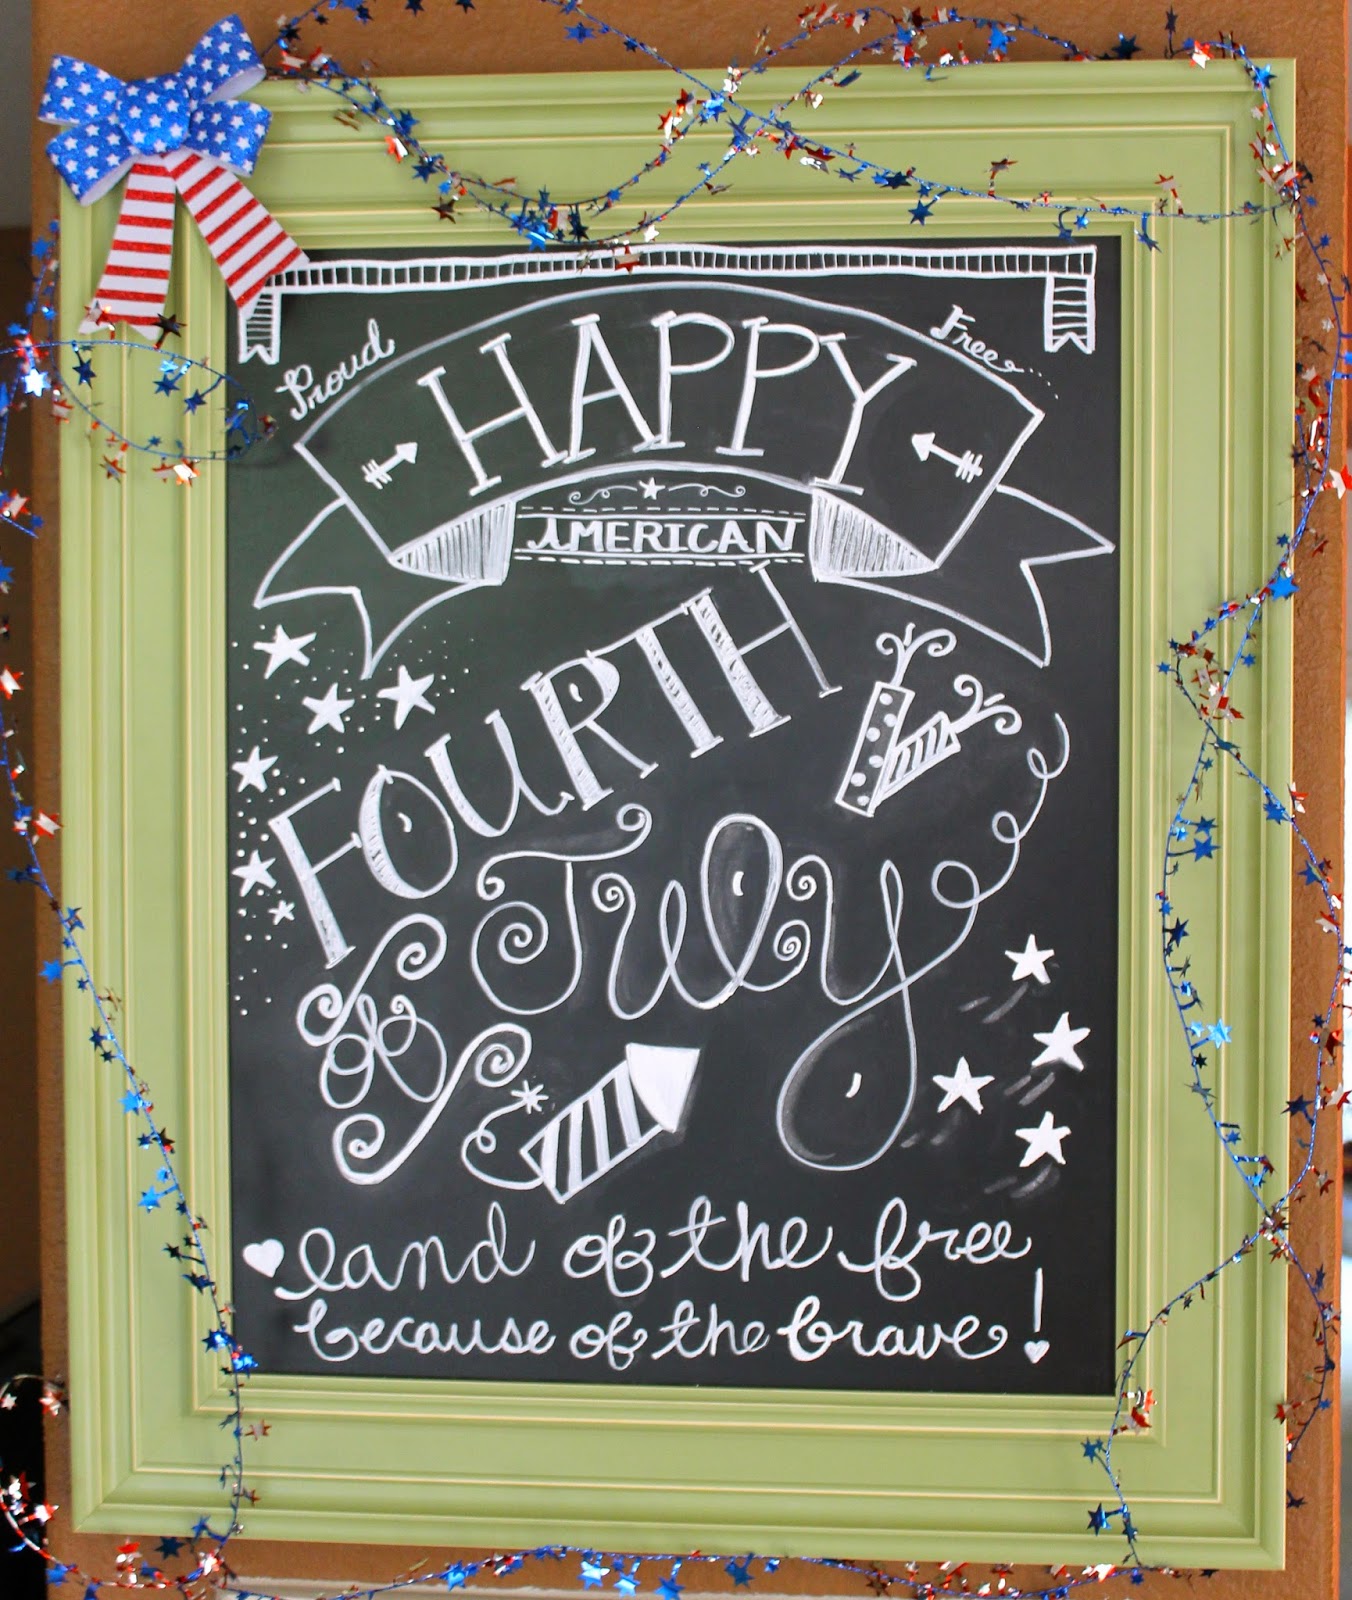 Proud
Free
HAPPY
AMERICAN
FOURTH
of July
land of the free
because of the brave!